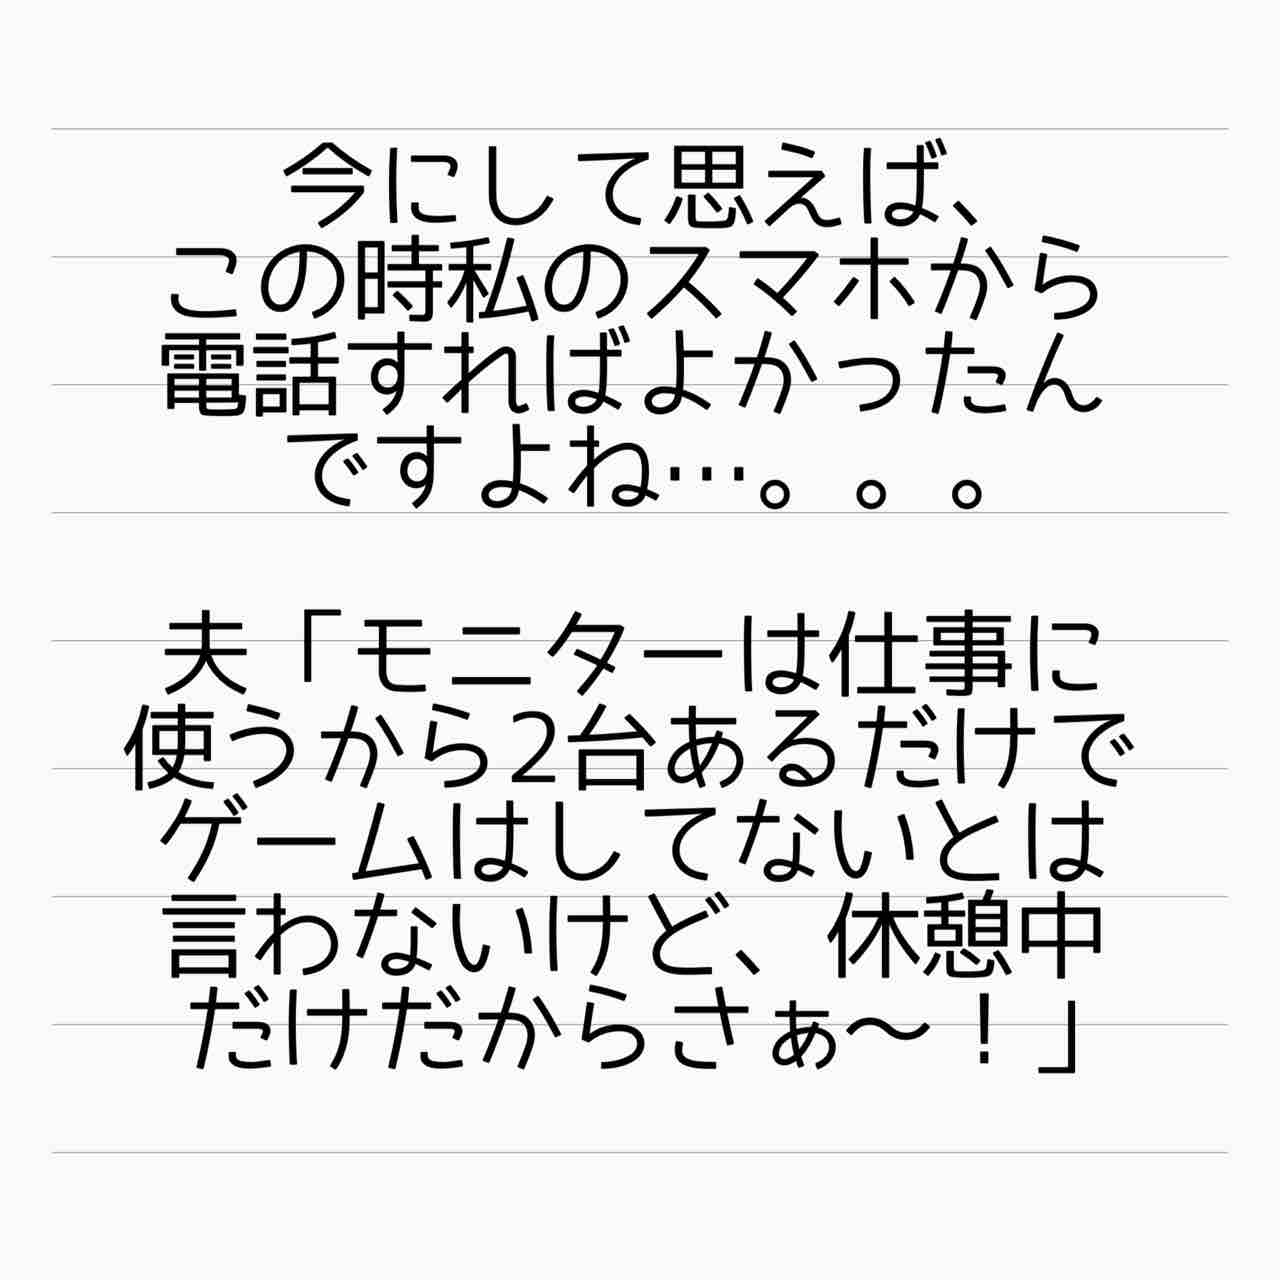 今にして思えば、
この時私のスマホから
電話すればよかったん
ですよね…。。。
夫「モニターは仕事に
使うから2台あるだけで
ゲームはしてないとは
言わないけど、休憩中
だけだからさぁ〜！」